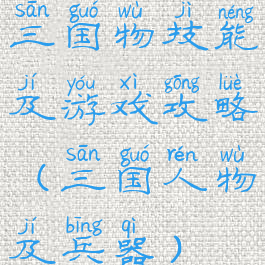 sān guó wù jì néng
三国物技能
jí yóu xì gōng lüè
及游戏攻略
sān guó rén wù
（三国人物
jí bīng qì
及兵器）